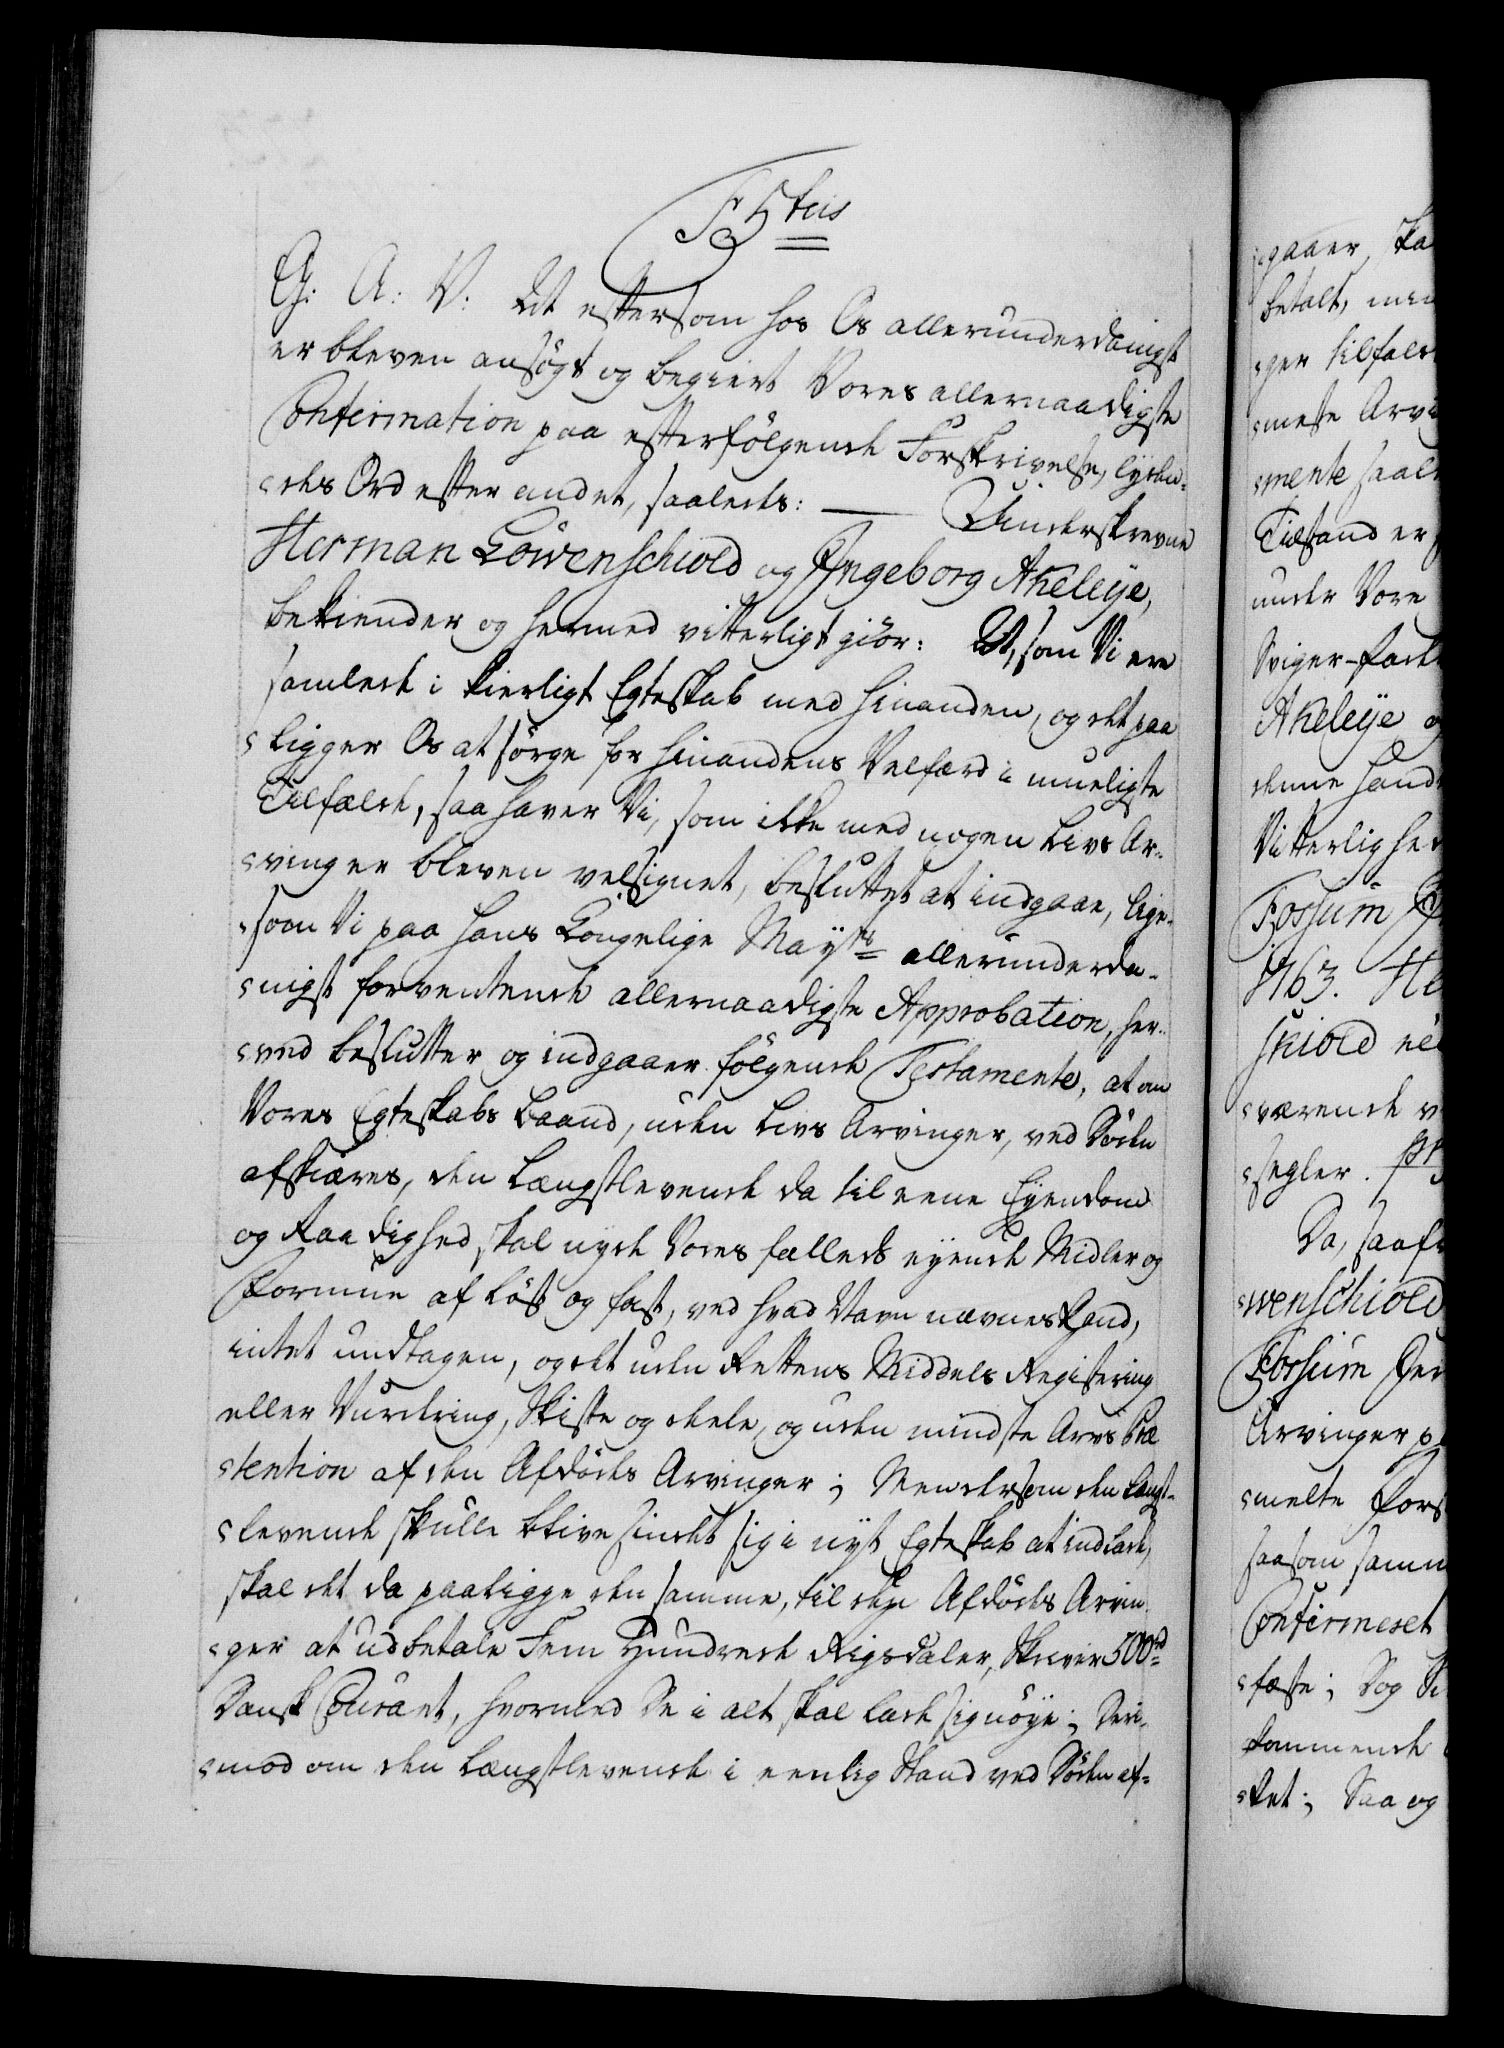 F 5tus
G: A: V: At eftersom hos Os allerunderdanigst
er bleven ansögt og begiert Vores allernaadigste
Confirmation paa efterfölgende Forskrivelse, lyden-
des Ord efter andet, saaledes: — Underskrevne
Herman Löwenschiold og Ingeborg Akeleÿe,
bekiender og hermed vitterligt giör: At, som Vi ere
samlede i kierligt Egteskab med hinanden, og det paa
ligger Os at sörge for hinandens Velfærd i mueligste
Tilfælde, saa haver Vi, som ikke med nogen Livs Ar-
vinger bleven velsignet, besluttet at indgaae, lige-
som Vi paa Hans Kongelige Mayts allerunderda-
nigst forventende allernaadigste Approbation, her-
ved beslutter og indgaaer fölgende Testamente, at om
Vores Egteskabs Baand, uden Livs Arvinger, ved Döden
afskiæres, den Længstlevende da til eene Eÿendom
og Raadighed, skal nyde Vores fælleds eyende Midler og
Formue af Löst og fast, ved hvad Navn nævnes kand,
intet undtagen, og det uden Rettens Middels Registering
eller Vurdring, Skifte og deele, og uden mindste Arvs Præ
tention af den Afdödes Arvinger; Men dersom den Længst-
levende skulle blive sindet sig i nyt Egteskab at indlade,
skal det da paaligge den samme, til den Afdödes Arvin-
ger at udbetale Fem Hundrede Rigsdaler, Skriver 500rd
Dansk Courant, hvormed De i alt skal lade sig nöÿe; Deri-
mod om den Længstlevende i eenlig Stand ved Döden af-
gaaer, ska
betalt, men
ger tilfald
meste Arvi
mente saal
Tilstand er
under Vore
Sviger-fad
Akeleÿe o
denne haand
Vitterlighed
Fossum
1763. He
skiold
værende v
segler.
Da, saafr
wenschiold
Fossum Jer
Arvinger p
melte Fors
saasom samm
Confirmeret
fæste; Dog
kommende
ket; Saa og